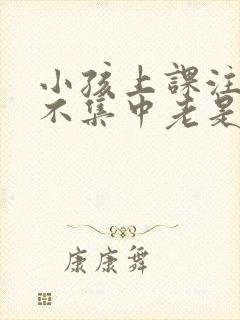 小孩上課注
不集中老是
康康舞